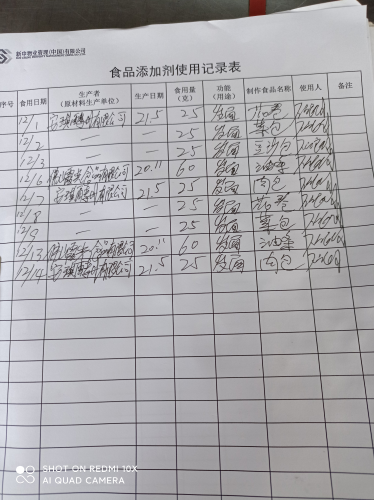 新中物业管理(中国)有限公司
食品添加剂使用记录表
序号 食用日期 生产者(原材料生产单位) 生产日期 食用量(克) 功能(用途) 制作食品名称 使用人 备注
12/1 安琪酵母有限公司 21.5 25 发面 花卷
12/2 — — 25 发面 菜包
12/3 — — 25 发面 豆沙包
12/6 食品有限公司 20.11 60 发面 油条
12/7 安琪酵母有限公司 21.5 25 发面 肉包
12/8 — — 25 发面 花卷
12/9 — — 25 发面 菜包
12/13 食品有限公司 20.11 60 发面 油条
12/14 安琪酵母有限公司 21.5 25 发面 肉包
SHOT ON REDMI 10X
AI QUAD CAMERA